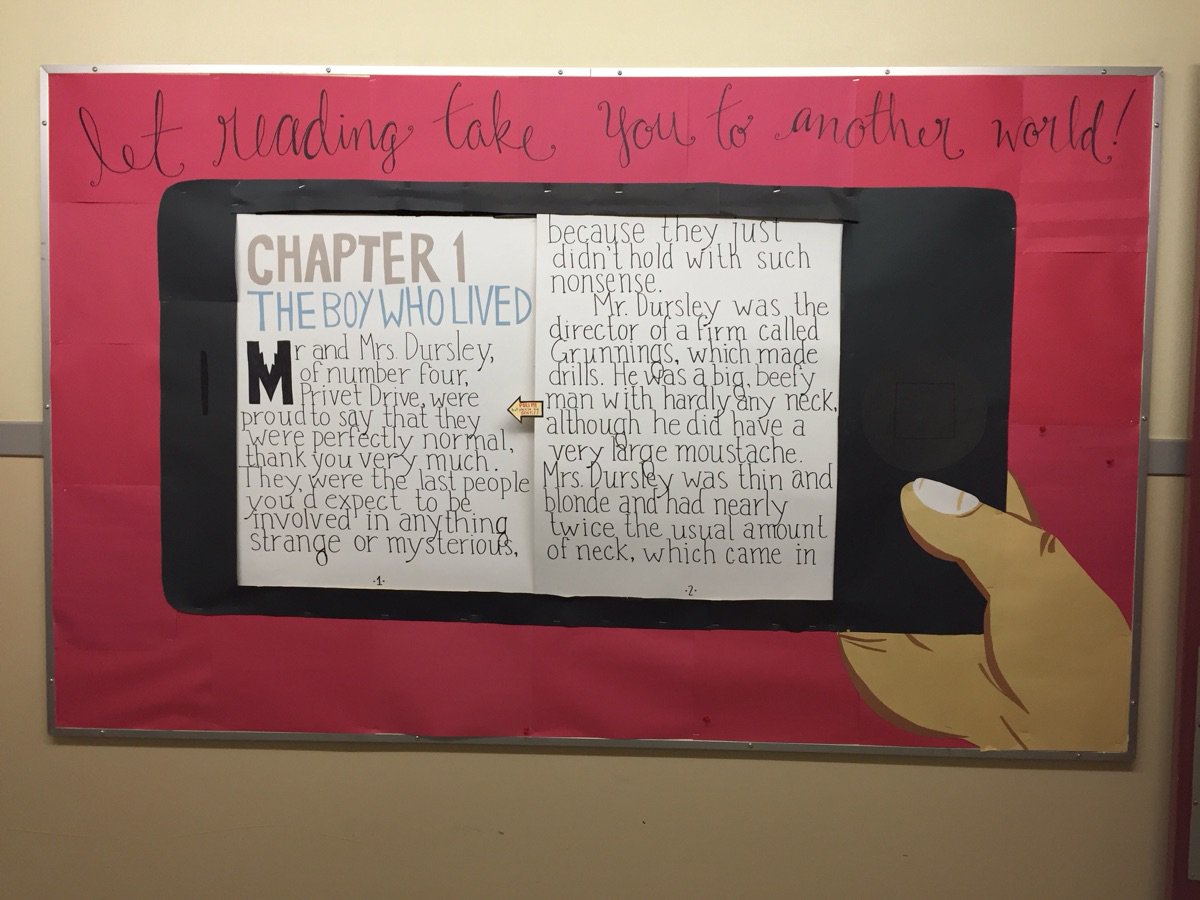 let reading take you to another world!
CHAPTER 1
THE BOY WHO LIVED
Mr and Mrs. Dursley,
of number four,
Privet Drive, were
proud to say that they
were perfectly normal,
thank you very much.
They were the last people
you'd expect to be
involved in anything
strange or mysterious,
-1-
PULL ME
because they just
didn't hold with such
nonsense.
Mr. Dursley was the
director of a firm called
Grunnings, which made
drills. He was a big, beefy
man with hardly any neck,
although he did have a
very large moustache.
Mrs. Dursley was thin and
blonde and had nearly
twice the usual amount
of neck, which came in
-2-